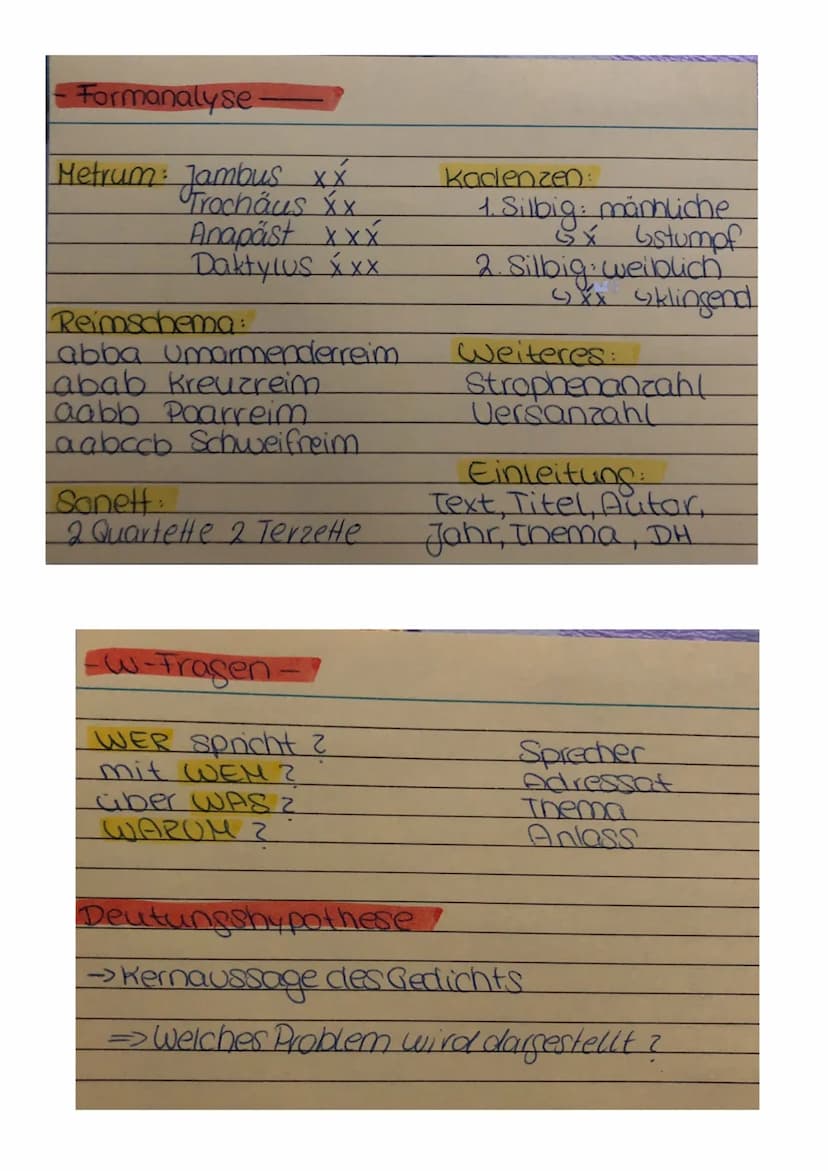 - Formanalyse —
Metrum: Jambus x x́
Trochäus x́ x
Anapäst x x x́
Daktylus x́ x x
Kadenzen:
1. Silbig: männliche
↳ x́ ↳ stumpf
2. Silbig: weiblich
↳ x́x ↳ klingend
Reimschema:
abba Umarmenderreim
abab Kreuzreim
aabb Paarreim
aabccb Schweifreim
Weiteres:
Strophenanzahl
Versanzahl
Sonett:
2 Quartette 2 Terzette
Einleitung:
Text, Titel, Autor,
Jahr, Thema, DH
- W-Fragen -
WER spricht? Sprecher
mit WEM? Adressat
über WAS? Thema
WARUM? Anlass
Deutungshypothese
→ Kernaussage des Gedichts
⇒ Welches Problem wird dargestellt?